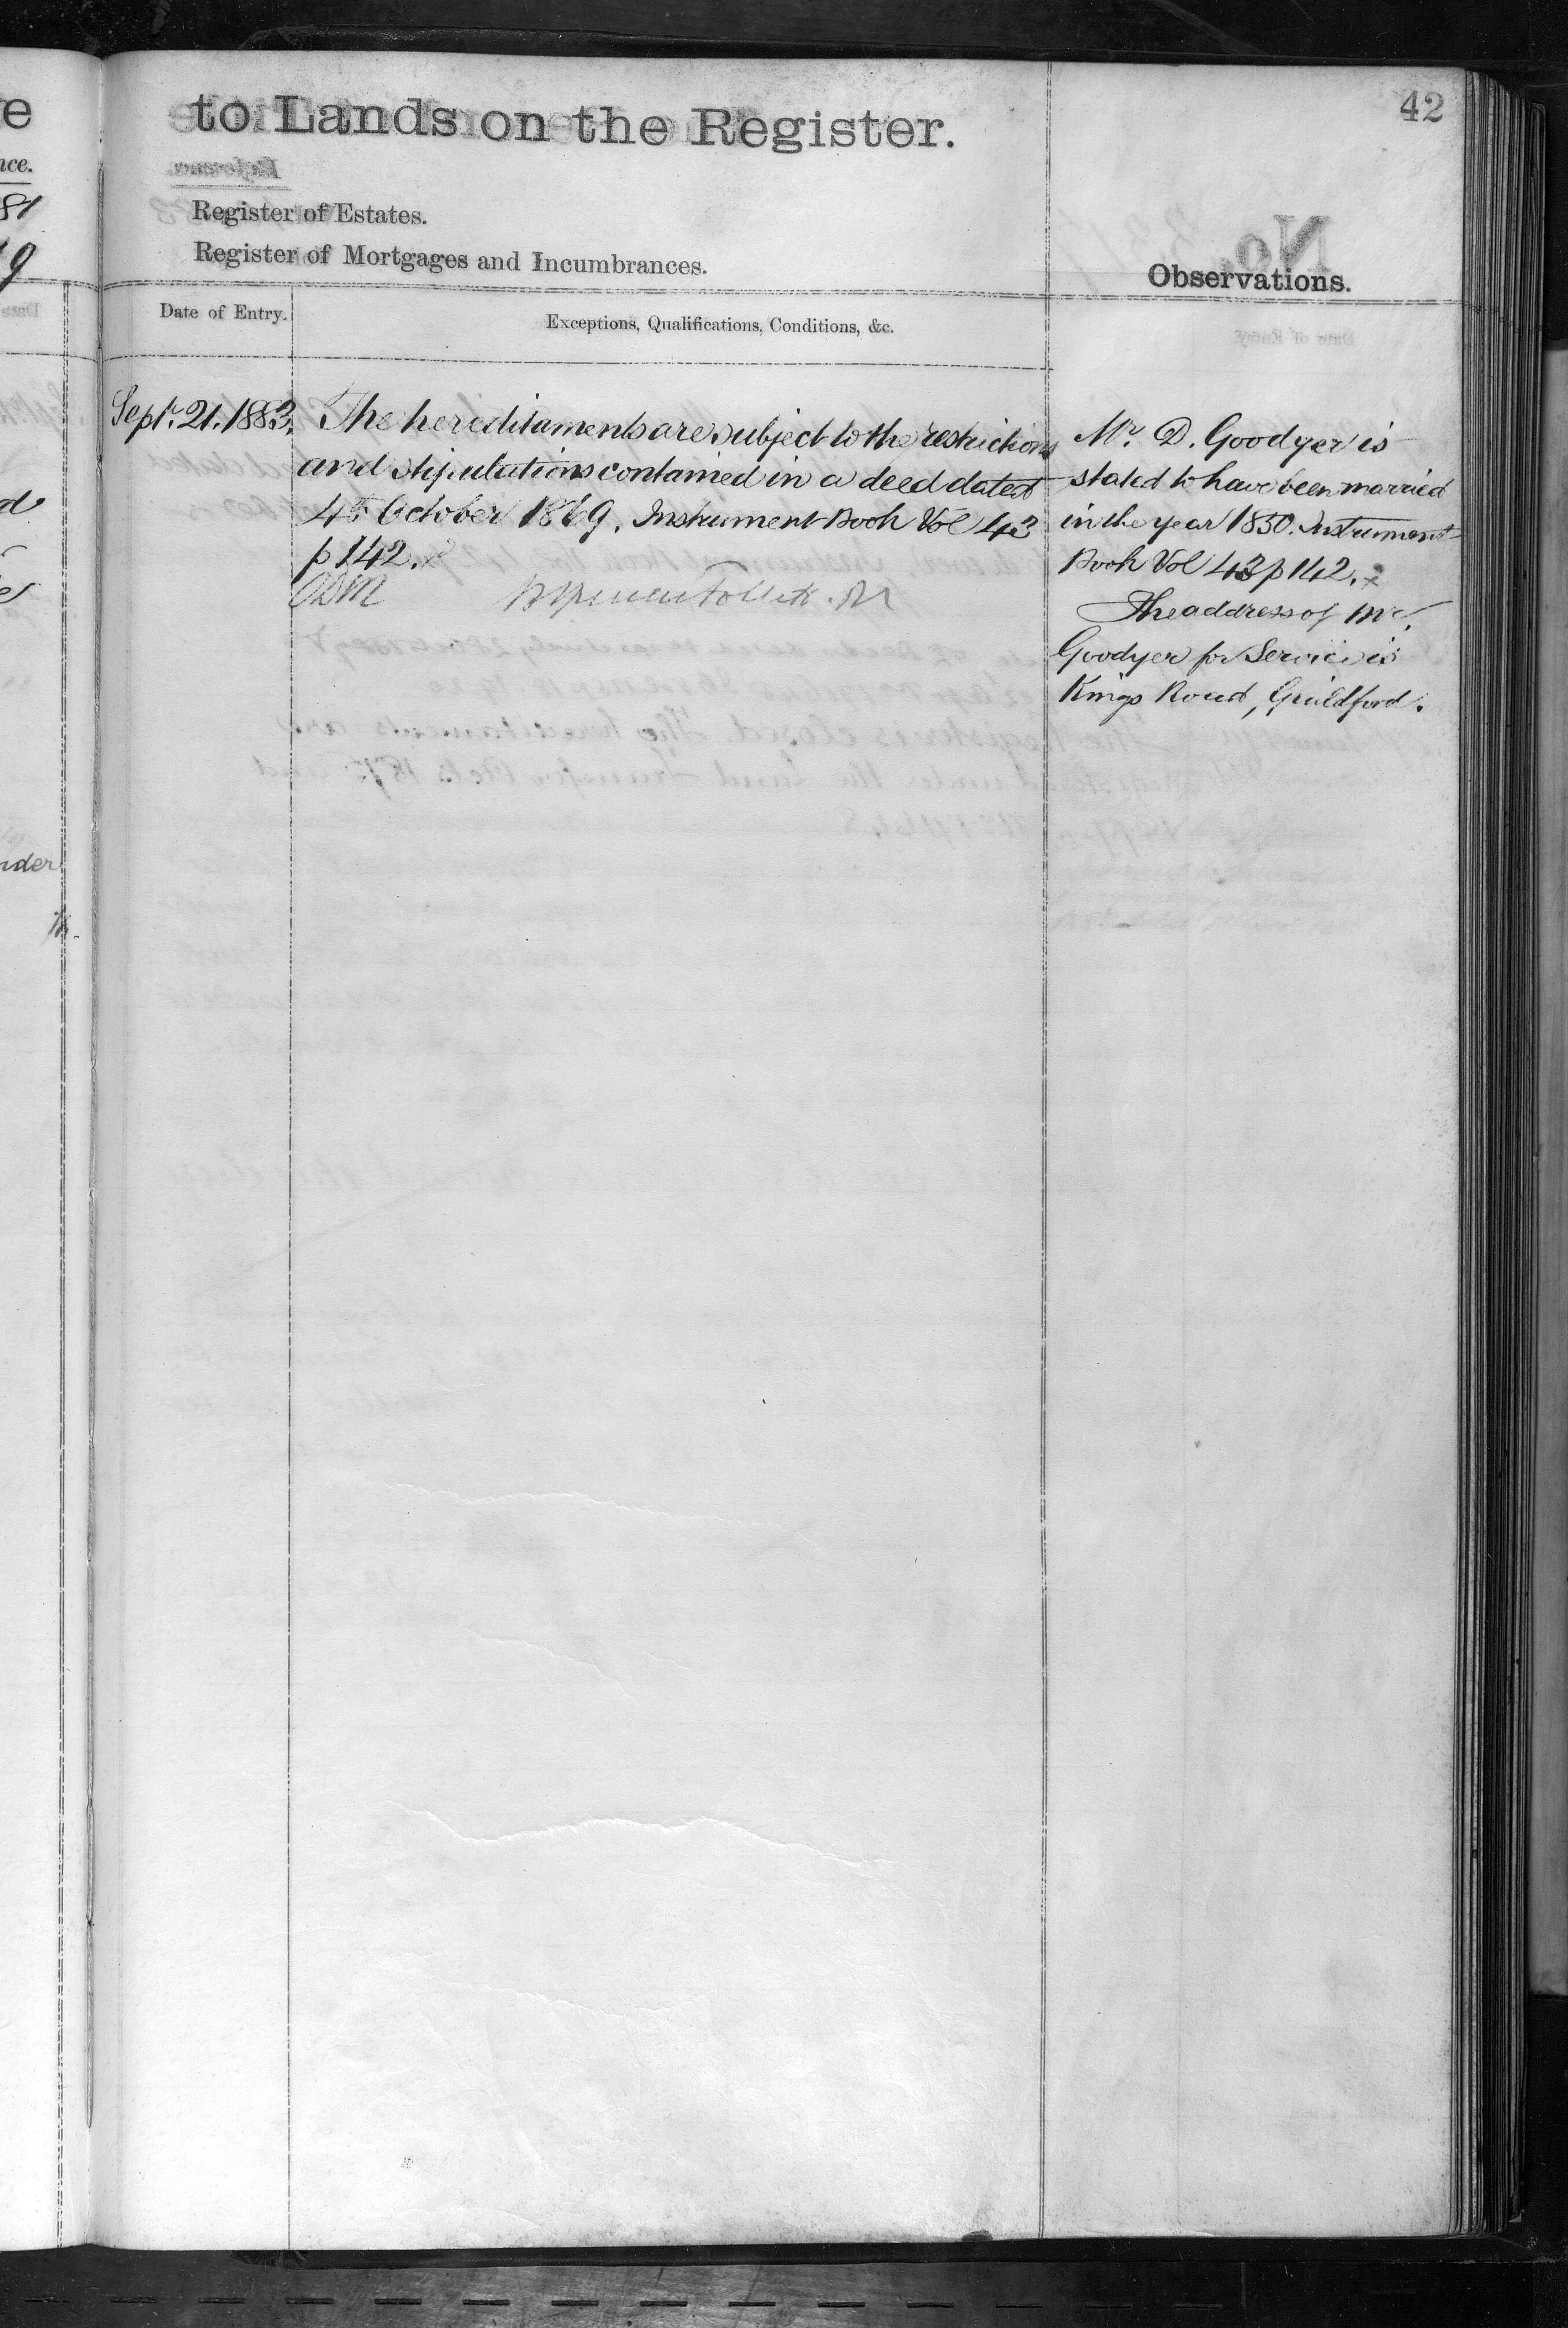 42
to Lands on the Register.
Register of Estates.
Register of Mortgages and Incumbrances.
Observations.
Date of Entry.
Exceptions, Qualifications, Conditions, &c.
Septr. 21. 1883.
The hereditaments are subject to the restrictions
and stipulations contained in a deed dated
4th October 1869. Instrument Book Vol 43
p 142.
Mr. D. Goodyer is
stated to have been married
in the year 1850. Instrument
Book Vol 43 p 142.
The address of Mr.
Goodyer for Service is
Kings Road, Guildford.
nce.
81
9
nder